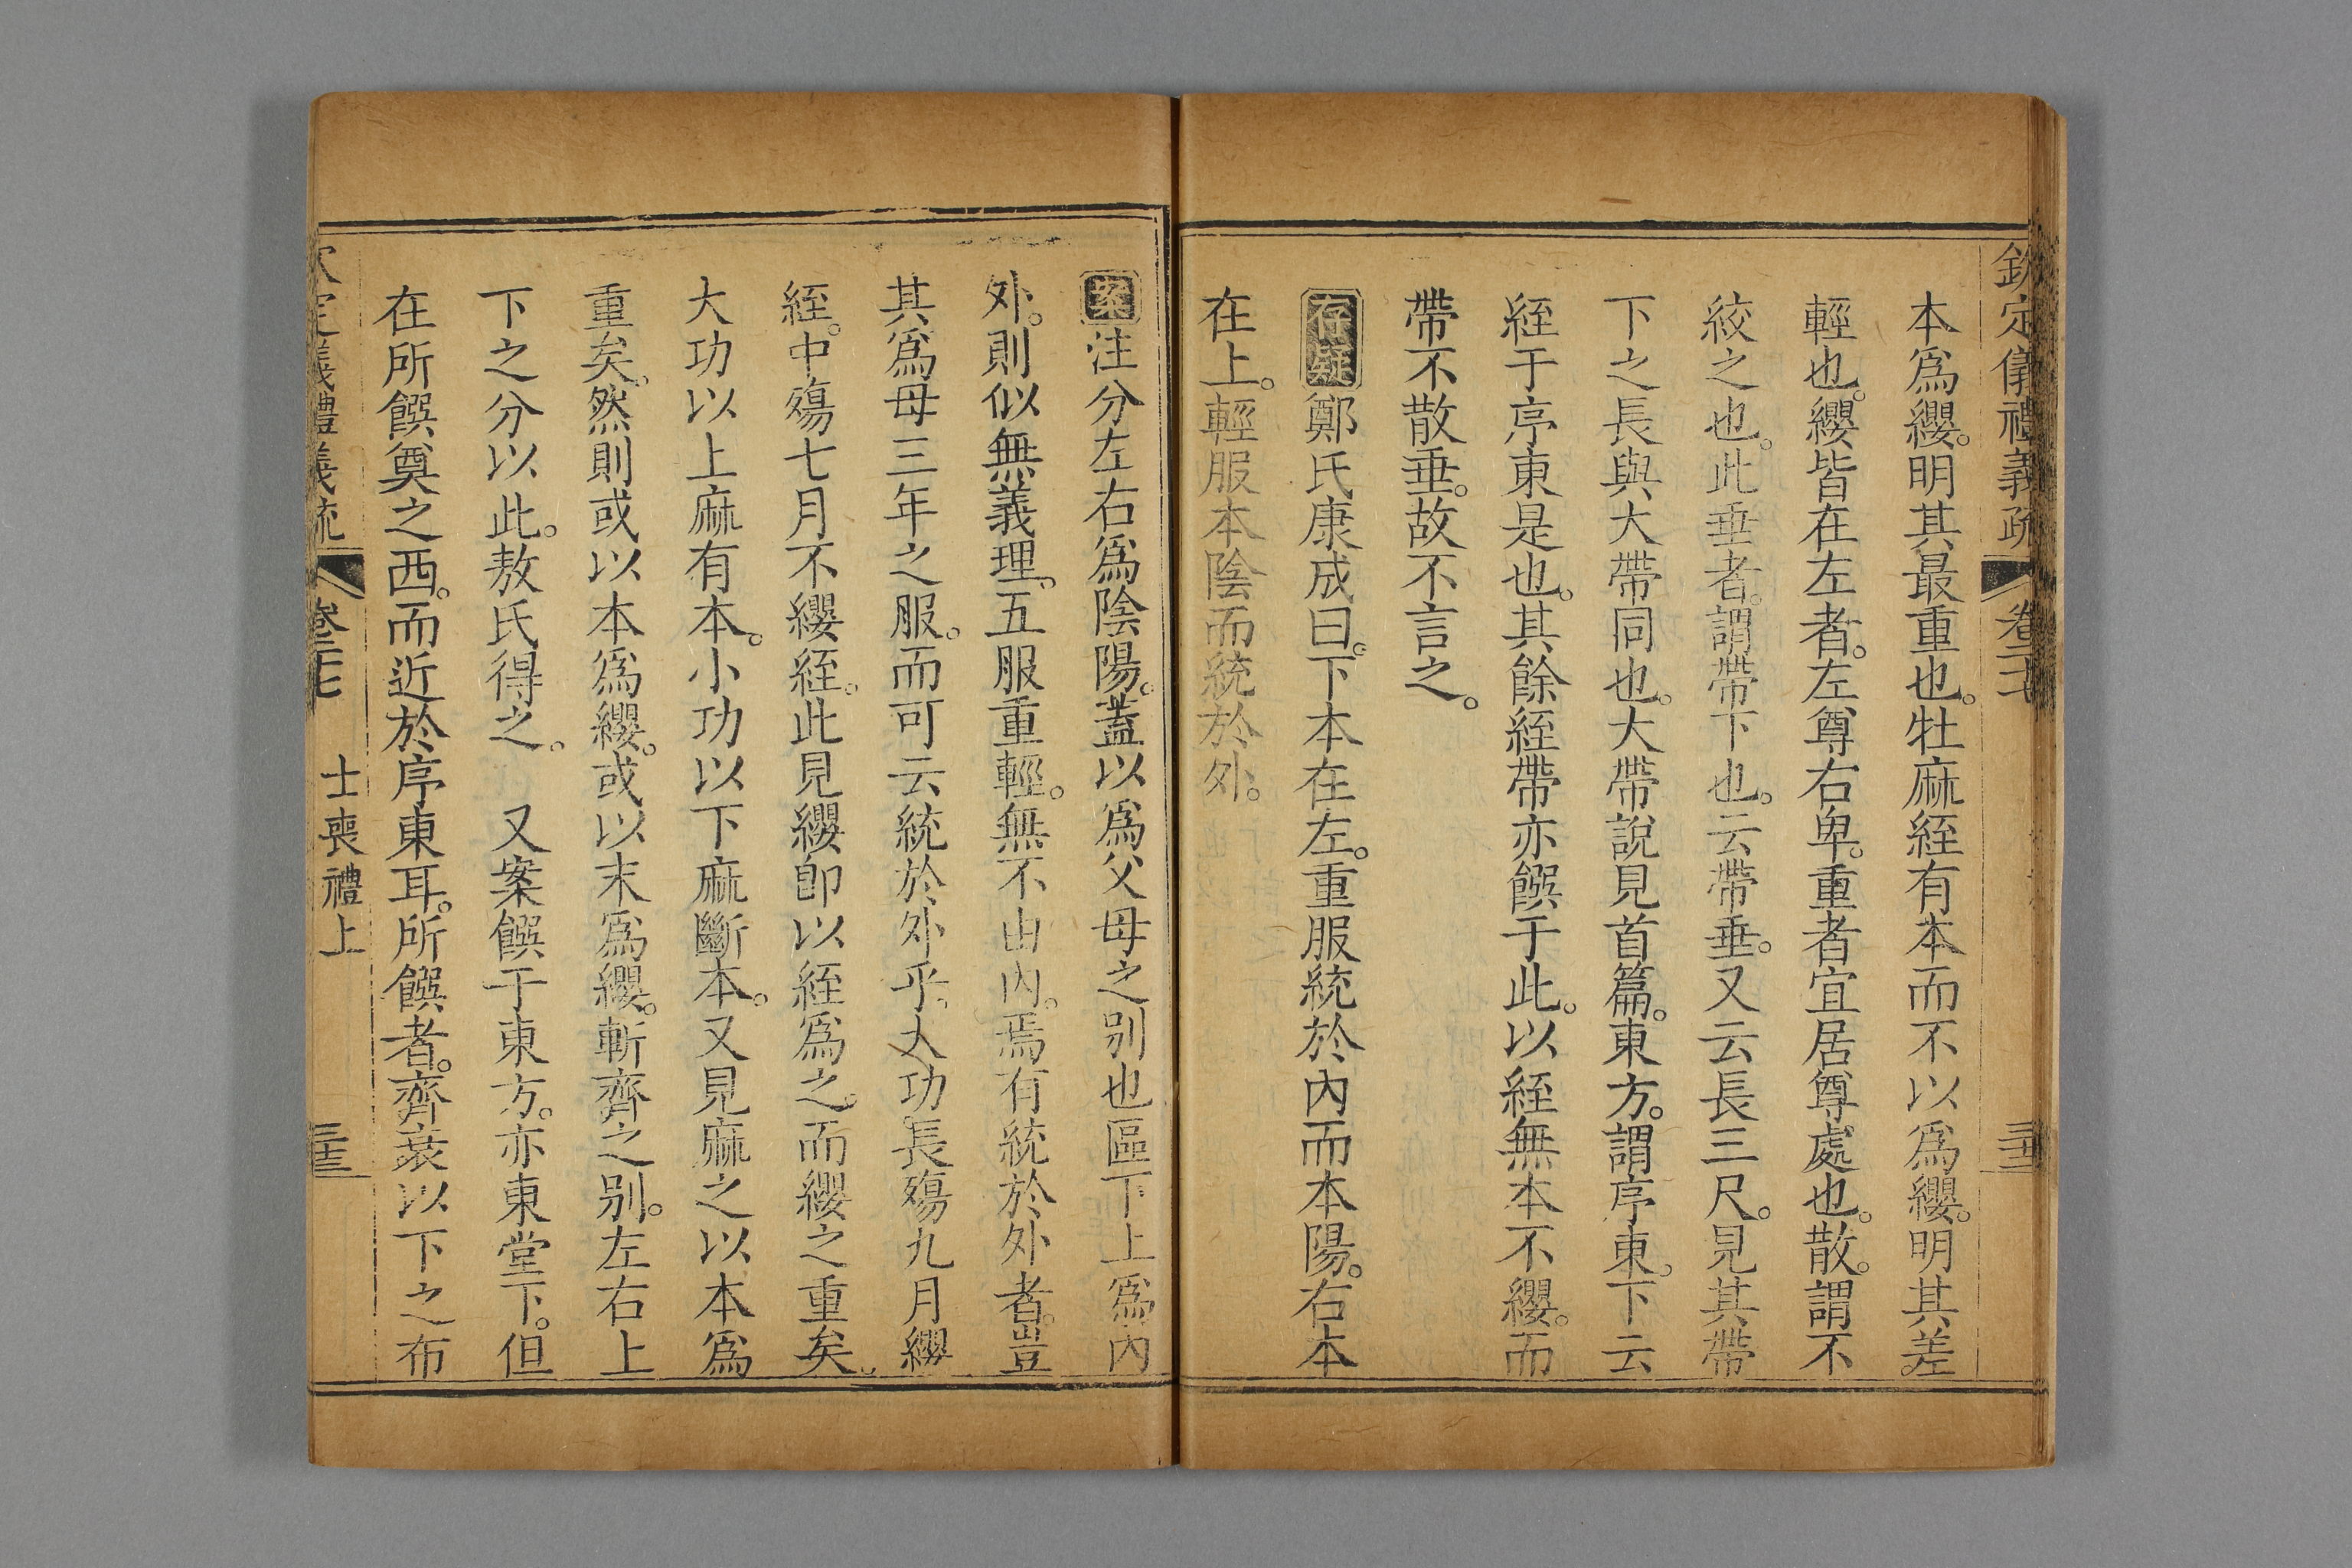 欽定儀禮義疏　卷二十七
本爲纓。明其最重也。牡麻絰有本而不以爲纓。明其差
輕也。纓皆在左者。左尊右卑。重者宜居尊處也。散。謂不
絞之也。此垂者。謂帶下也。云帶垂。又云長三尺。見其帶
下之長與大帶同也。大帶說見首篇。東方。謂序東。下云
絰于序東是也。其餘絰帶亦饌于此。以絰無本不纓。而
帶不散垂。故不言之。
存疑鄭氏康成曰。下本在左。重服統於內而本陽。右本
在上。輕服本陰而統於外。
案注分左右爲陰陽。蓋以爲父母之別也區下上爲內
外。則似無義理。五服重輕。無不由內。焉有統於外者。豈
其爲母三年之服。而可云統於外乎。大功。長殤九月纓
絰。中殤七月不纓絰。此見纓卽以絰爲之。而纓之重矣。
大功以上麻有本。小功以下麻斷本。又見麻之以本爲
重矣。然則或以本爲纓。或以末爲纓。斬齊之別。左右上
下之分以此。敖氏得之。　又案饌于東方。亦東堂下。但
在所饌奠之西。而近於序東耳。所饌者。齊衰以下之布
欽定儀禮義疏　卷二十七　士喪禮上